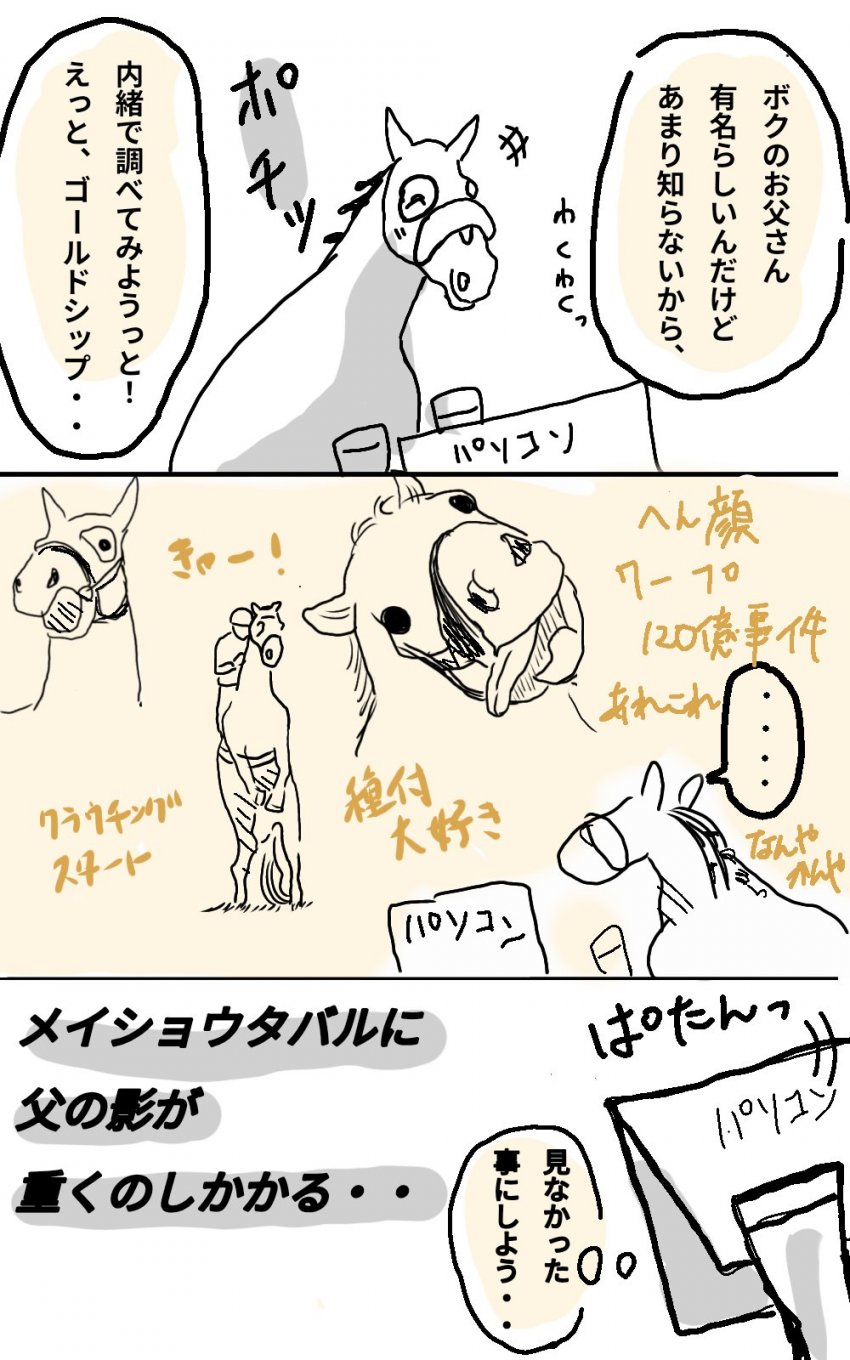 ボクのお父さん
有名らしいんだけど
あまり知らないから、
わくわくっ
ポチッ
内緒で調べてみようっと！
えっと、ゴールドシップ・・
パソコン
へん顔
ワープ
120億事件
あれこれ
きゃー！
・・・・
種付
大好き
クラウチング
スタート
なんや
かんや
パソコン
ぱたんっ
パソコン
メイショウタバルに
父の影が
重くのしかかる・・
見なかった
事にしよう・・